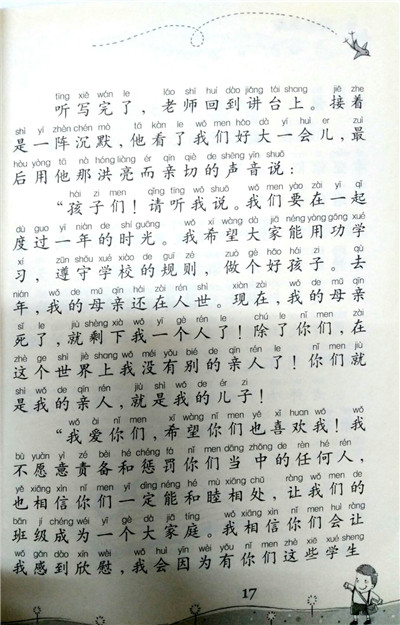 tīng xiě wán le lǎo shī huí dào jiǎng tái shang jiē zhe
听写完了，老师回到讲台上。接着
shì yī zhèn chén mò tā kàn le wǒ men hǎo dà yī huì er zuì
是一阵沉默，他看了我们好大一会儿，最
hòu yòng tā nà hóng liàng ér qīn qiè de shēng yīn shuō
后用他那洪亮而亲切的声音说：
hái zi men qǐng tīng wǒ shuō wǒ men yào zài yī qǐ
“孩子们！请听我说。我们要在一起
dù guo yī nián de shí guāng wǒ xī wàng dà jiā néng yòng gōng xué
度过一年的时光。我希望大家能用功学
xí zūn shǒu xué xiào de guī zé zuò gè hǎo hái zi qù
习，遵守学校的规则，做个好孩子。去
nián wǒ de mǔ qīn hái zài rén shì xiàn zài wǒ de mǔ qīn
年，我的母亲还在人世。现在，我的母亲
sǐ le jiù shèng xià wǒ yī gè rén le chú le nǐ men zài
死了，就剩下我一个人了！除了你们，在
zhè ge shì jiè shang wǒ méi yǒu bié de qīn rén le nǐ men jiù
这个世界上我没有别的亲人了！你们就
shì wǒ de qīn rén jiù shì wǒ de ér zi
是我的亲人，就是我的儿子！
wǒ ài nǐ men xī wàng nǐ men yě xǐ huan wǒ wǒ
“我爱你们，希望你们也喜欢我！我
bù yuàn yì zé bèi hé chéng fá nǐ men dāng zhōng de rèn hé rén
不愿意责备和惩罚你们当中的任何人，
yě xiāng xìn nǐ men yī dìng néng hé mù xiāng chǔ ràng wǒ men de
也相信你们一定能和睦相处，让我们的
bān jí chéng wéi yī gè dà jiā tíng wǒ xiāng xìn nǐ men huì ràng
班级成为一个大家庭。我相信你们会让
wǒ gǎn dào xīn wèi wǒ huì yīn wèi yǒu nǐ men zhè xiē xué shēng
我感到欣慰，我会因为有你们这些学生
17